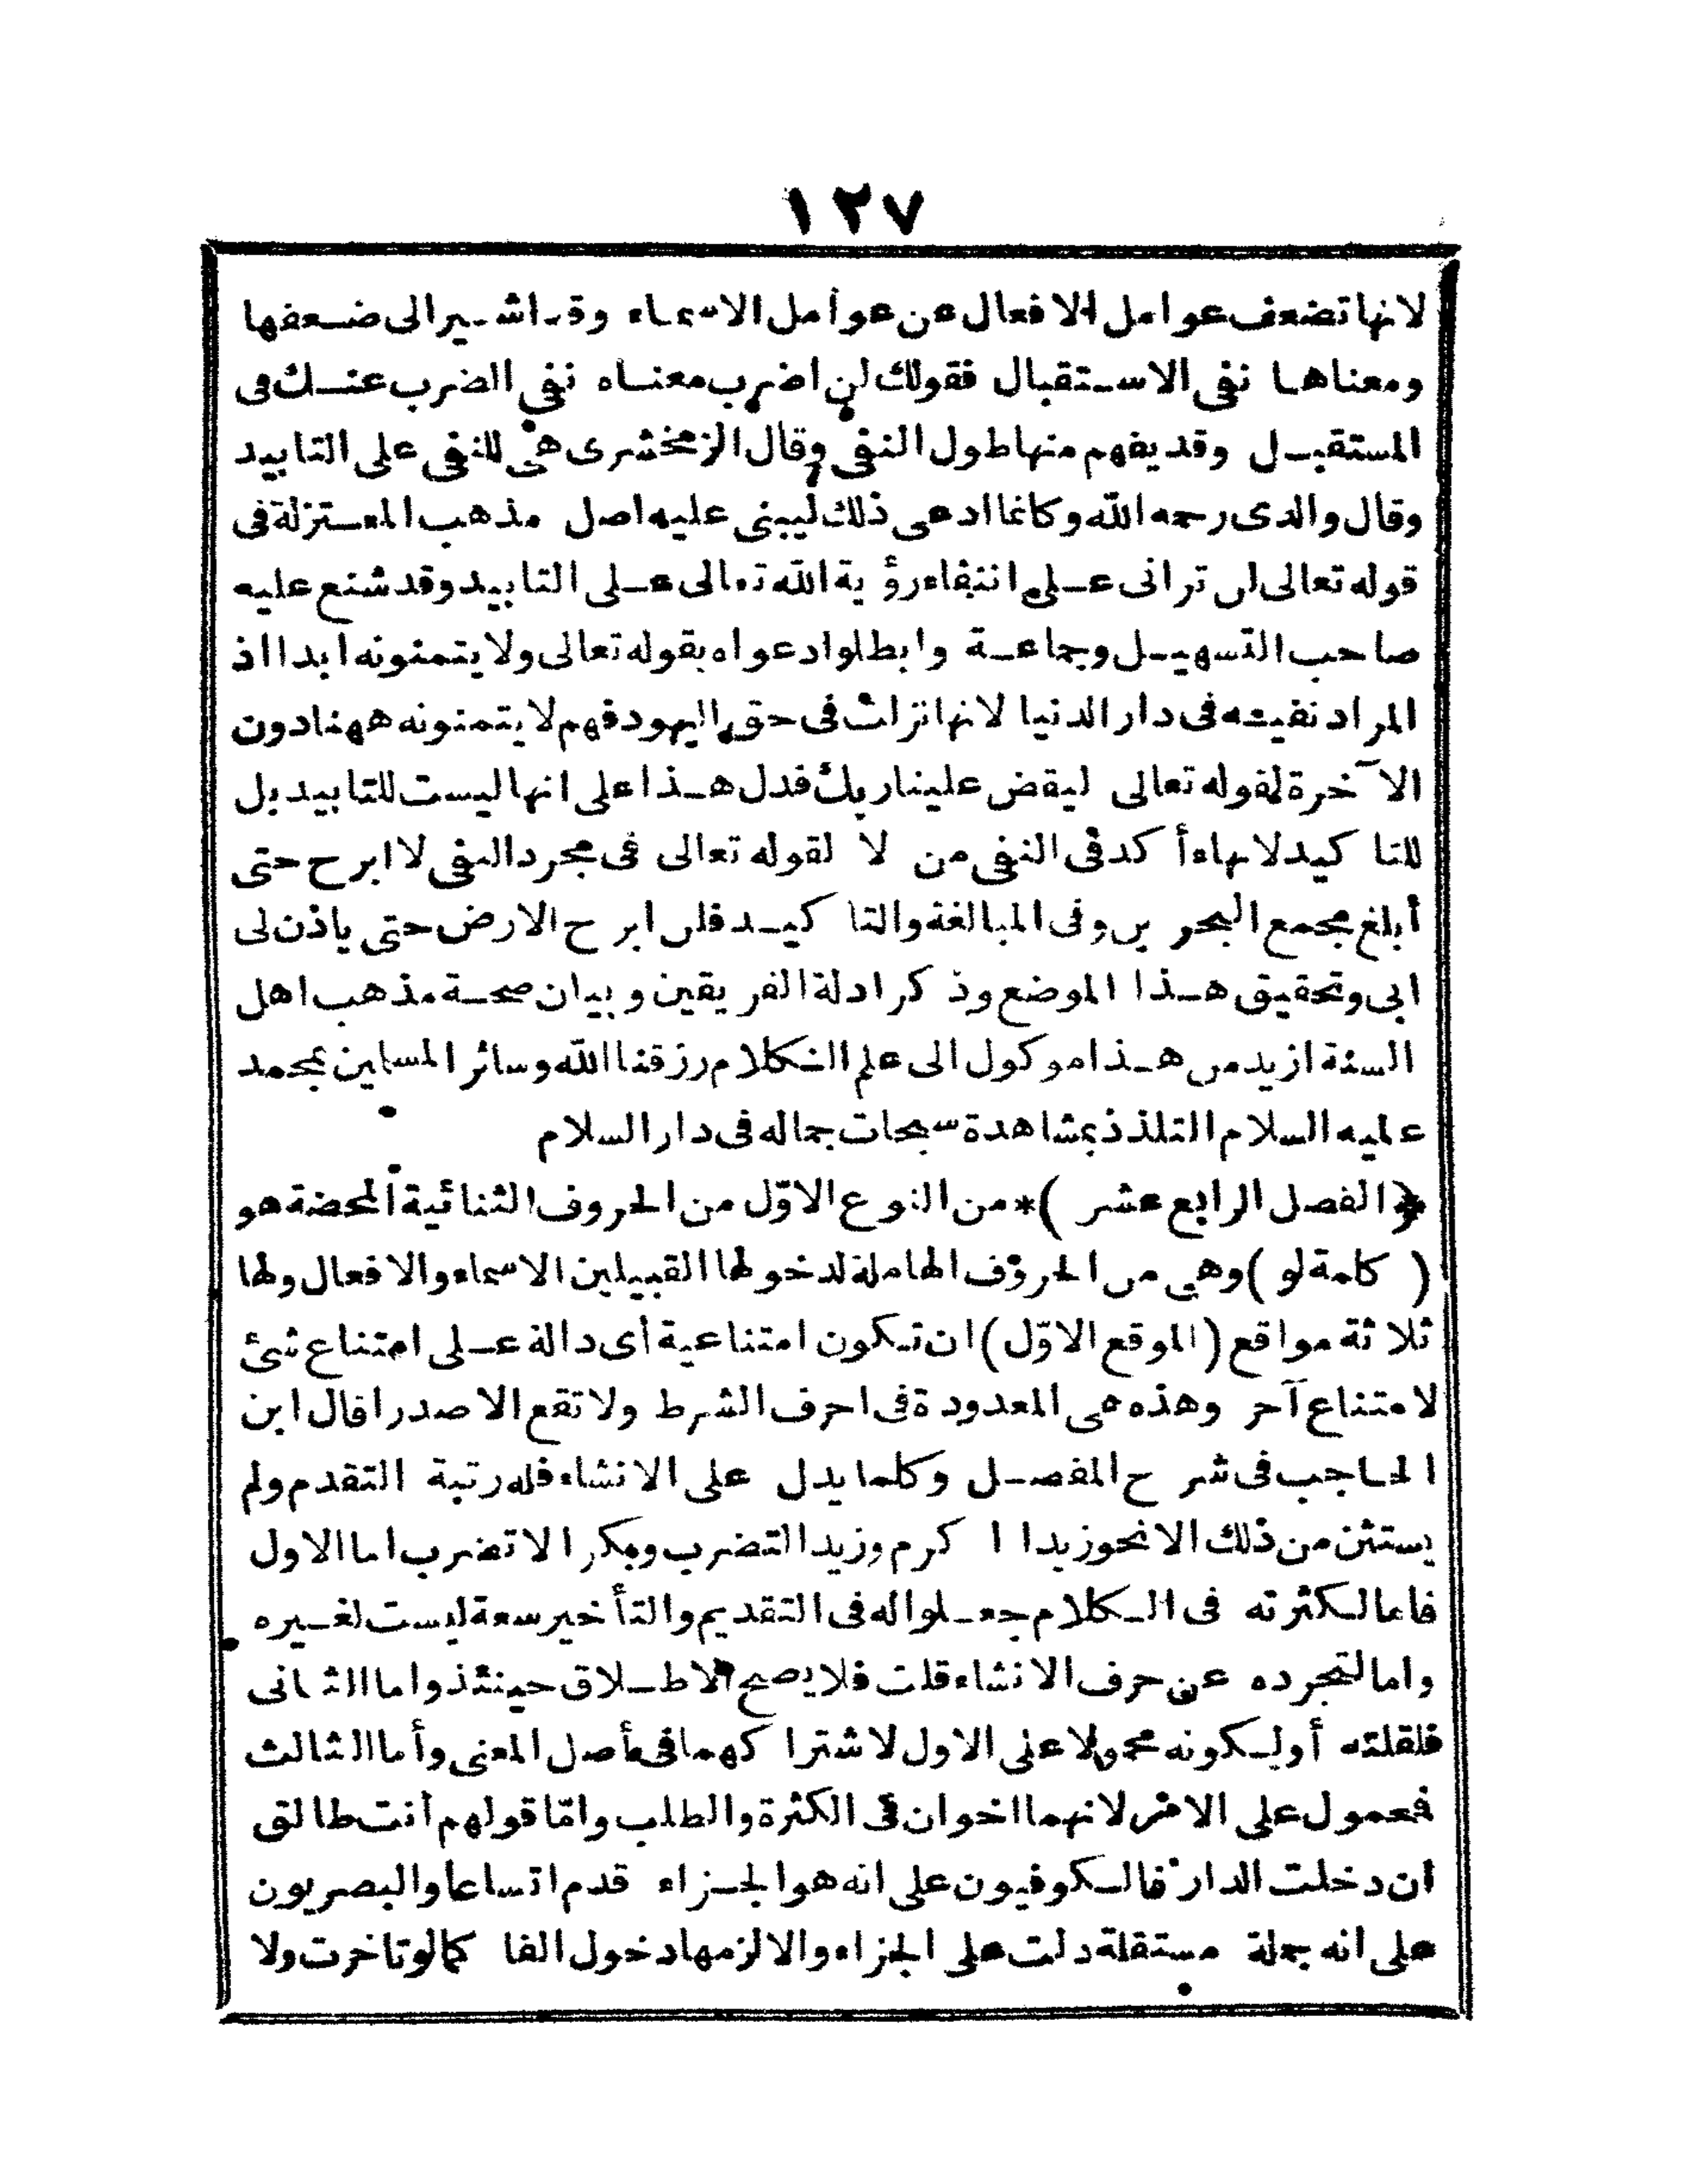 ١٢٧
لانها تضعف عوامل الافعال عن عوامل الاسماء وقد اشير الى ضعفها
ومعناها نفى الاستقبال فقولك لن اضرب معناه نفى الضرب عنك فى
المستقبل وقد يفهم منها طول النفى وقال الزمخشرى هى للنفى على التابيد
وقال والدى رحمه الله وكانما ادعى ذلك ليبنى عليه اصل مذهب المعتزلة فى
قوله تعالى لن ترانى على انتفاء رؤية الله تعالى على التابيد وقد شنع عليه
صاحب التسهيل وجماعة وابطلوا دعواه بقوله تعالى ولا يتمنونه ابدا اذ
المراد نفيته فى دار الدنيا لانها نزلت فى حق اليهود فهم لا يتمنونه ههنا دون
الآخرة لقوله تعالى ليقض علينا ربك فدل هذا على انها ليست للتابيد بل
للتاكيد لانها أكد فى النفى من لا لقوله تعالى فى مجرد النفى لا ابرح حتى
أبلغ مجمع البحرين وفى المبالغة والتاكيد فلن ابرح الارض حتى ياذن لى
ابى وتحقيق هذا الموضع وذكر ادلة الفريقين وبيان صحة مذهب اهل
السنة ازيد من هذا موكول الى علم الكلام رزقنا الله وسائر المسلمين بمحمد
عليه السلام التلذذ بمشاهدة سبحات جماله فى دار السلام
*(الفصل الرابع عشر)* من النوع الاوّل من الحروف الثنائية المحضة هو
(كلمة لو) وهى من الحروف الهاملة لدخولها القبيلين الاسماء والافعال ولها
ثلاثة مواقع (الموقع الاوّل) ان تكون امتناعية أى دالة على امتناع شئ
لامتناع آخر وهذه هى المعدودة فى احرف الشرط ولا تقع الا صدرا قال ابن
الحاجب فى شرح المفصل وكلما يدل على الانشاء فله رتبة التقدم ولم
يستثن من ذلك الا نحو زيدا اكرم وزيدا لتضرب وبكرا لا تضرب اما الاول
فاما لكثرته فى الكلام جعلوا له فى التقديم والتأخير سعة ليست لغيره
واما لتجرده عن حرف الانشاء قلت فلا يصح الاطلاق حينئذ واما الثانى
فلقلته أو لكونه محمولا على الاول لاشتراكهما فى أصل المعنى وأما الثالث
فحمول على الامر لانهما اخوان فى الكثرة والطلب وامّا قولهم أنت طالق
ان دخلت الدار فالكوفيون على انه هو الجزاء قدم اتساعا والبصريون
على انه جملة مستقلة دلت على الجزاء والا لزمها دخول الفا كما لو تاخرت ولا